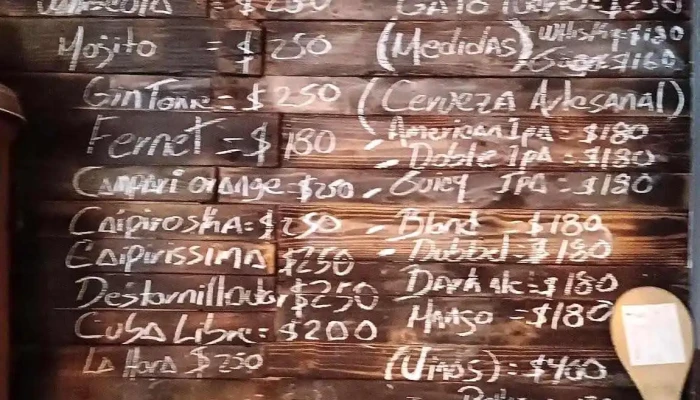 = $250
Mojito = $250
Gin Tonic = $250
Fernet = $180
Campari orange = $250
Caipiroska = $250
Caipirissima $250
Destornillador $250
Cuba Libre: $200
La Hora $250
Gato Negro = $250
(Medidas) Whisky = $180
$160
(Cerveza Artesanal)
- American Ipa = $180
- Doble IPA = $180
- Guicy IPA = $180
- Blond - $180
- Dubbel = $180
Dark ale = $180
Mango = $180
(Vinos) = $400